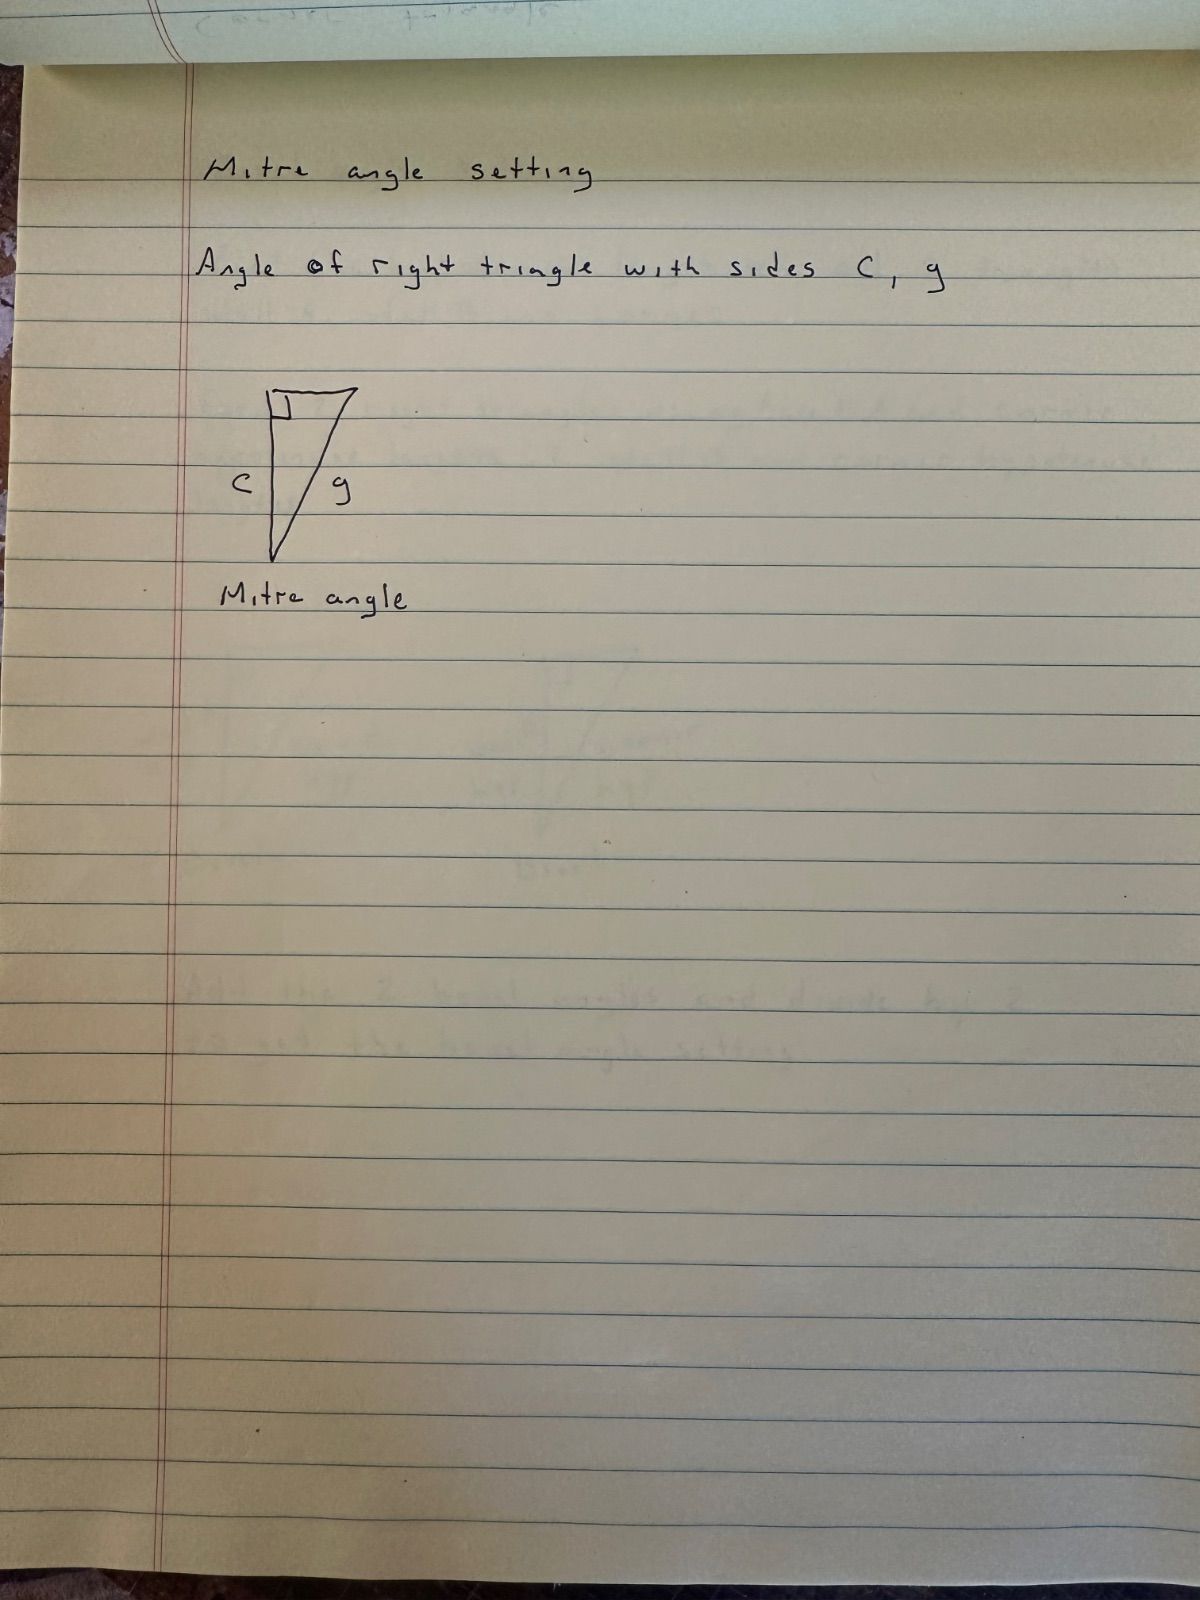 Mitre angle setting
Angle of right triangle with sides C, g
C g
Mitre angle